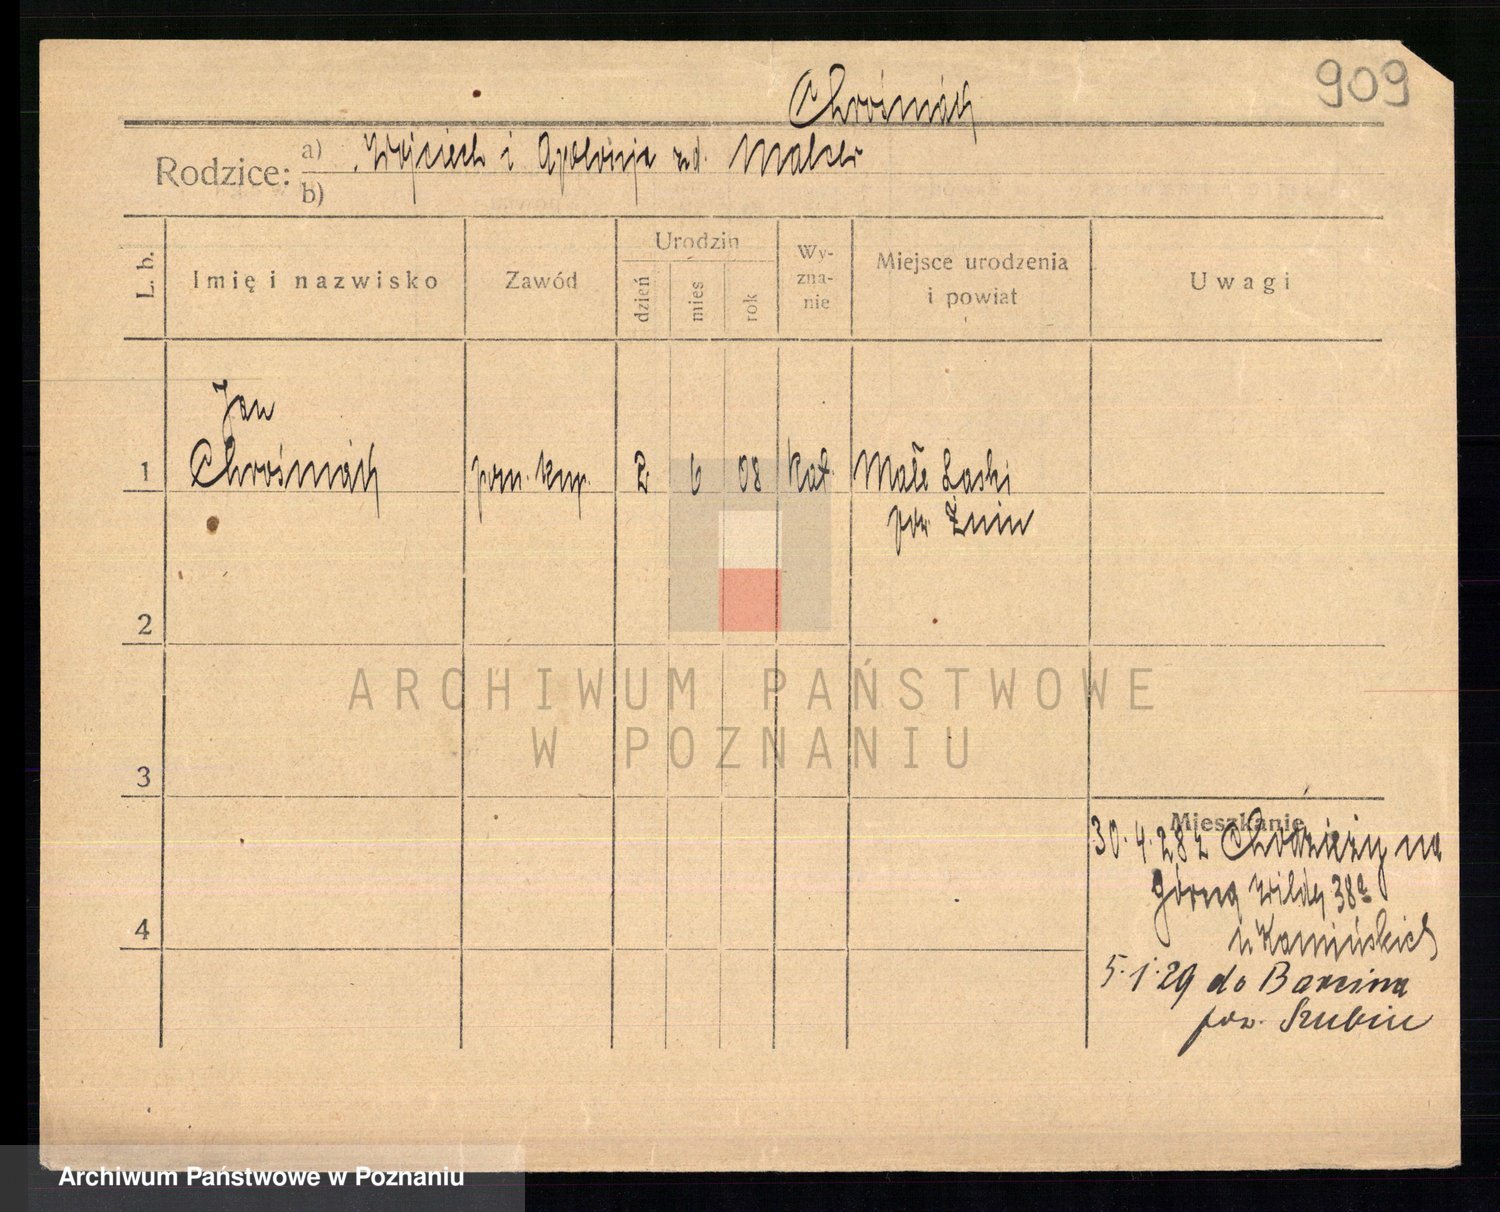 909
Chrośniak
Rodzice: a) Wojciech i Apolonja zd. Malser
b)
L. b. Imię i nazwisko Zawód Urodzin dzień mies rok Wy-zna-nie Miejsce urodzenia i powiat Uwagi
Jan
1 Chrośniak pom. kup. 2 6 08 kat. Małe Laski
pow. Żnin
2
3
4
Mieszkanie
30.4.28 z Chodzieży na
Górną Wildę 38a
u Kamińskich
5.1.29 do Barcina
pow. Szubin
ARCHIWUM PAŃSTWOWE
W POZNANIU
Archiwum Państwowe w Poznaniu